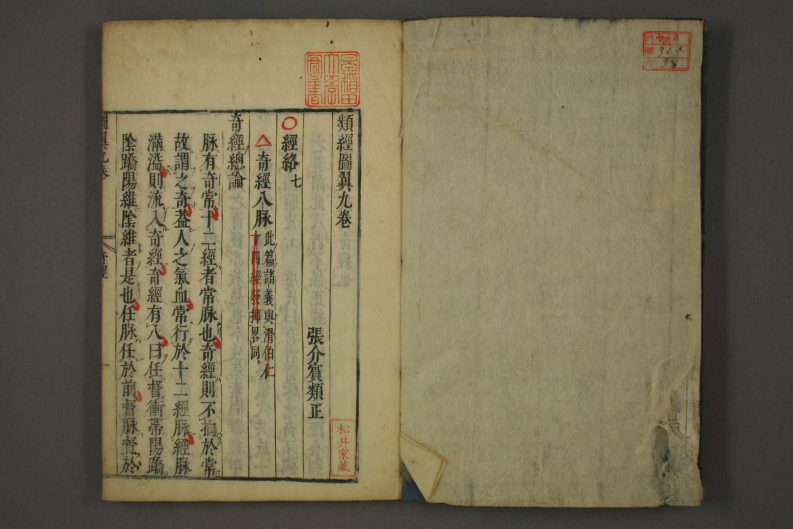 類經圖翼九卷
張介賓類正
經絡七
奇經八脉 此篇諸義與滑伯仁
十四經發揮畧同
奇經總論
脉有奇常十二經者常脉也奇經則不拘於常
故謂之奇葢人之氣血常行於十二經脉經脉
滿溢則流入奇經奇經有八曰任督衝帶陽蹻
陰蹻陽維陰維者是也任脉任於前督脉督於
松井家藏
早稻田大學圖書